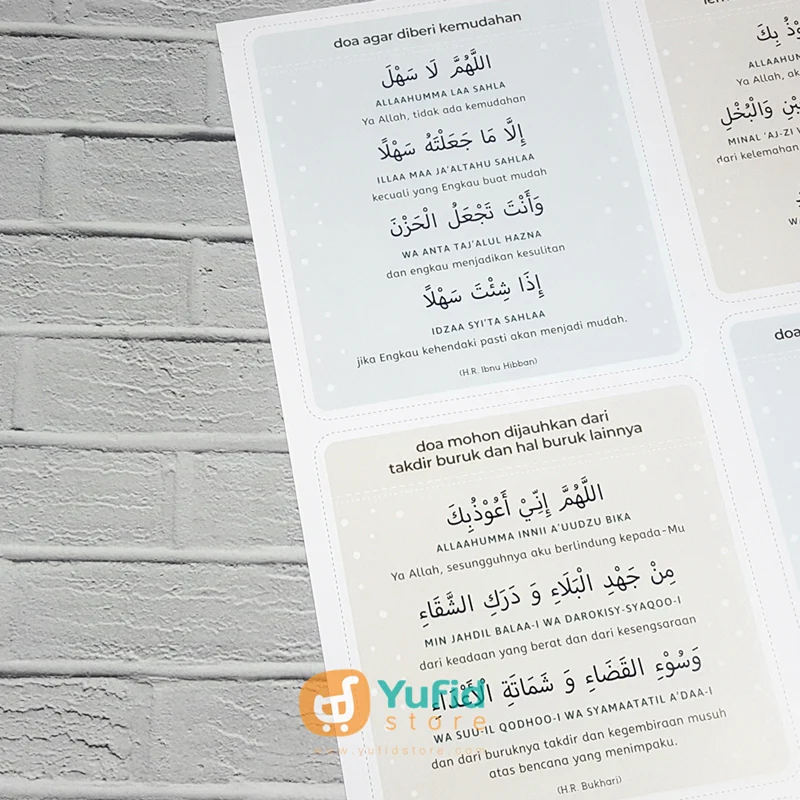 doa agar diberi kemudahan
اللَّهُمَّ لَا سَهْلَ
ALLAAHUMMA LAA SAHLA
Ya Allah, tidak ada kemudahan
إِلَّا مَا جَعَلْتَهُ سَهْلًا
ILLAA MAA JA'ALTAHU SAHLAA
kecuali yang Engkau buat mudah
وَأَنْتَ تَجْعَلُ الْحَزْنَ
WA ANTA TAJ'ALUL HAZNA
dan engkau menjadikan kesulitan
إِذَا شِئْتَ سَهْلًا
IDZAA SYI'TA SAHLAA
jika Engkau kehendaki pasti akan menjadi mudah.
(H.R. Ibnu Hibban)
doa mohon dijauhkan dari
takdir buruk dan hal buruk lainnya
اللَّهُمَّ إِنِّيْ أَعُوْذُبِكَ
ALLAAHUMMA INNII A'UUDZU BIKA
Ya Allah, sesungguhnya aku berlindung kepada-Mu
مِنْ جَهْدِ الْبَلَاءِ وَ دَرَكِ الشَّقَاءِ
MIN JAHDIL BALAA-I WA DAROKISY-SYAQOO-I
dari keadaan yang berat dan dari kesengsaraan
وَسُوْءِ القَضَاءِ وَ شَمَاتَةِ الْأَعْدَاءِ
WA SUU-IL QODHOO-I WA SYAMAATATIL A'DAA-I
dan dari buruknya takdir dan kegembiraan musuh
atas bencana yang menimpaku.
(H.R. Bukhari)
بِكَ
Ya Allah, ak
وَالْبُخْلِ
MINAL 'AJ-ZI
dari kelemahan
doa
Yufid
store
www.yufidstore.com